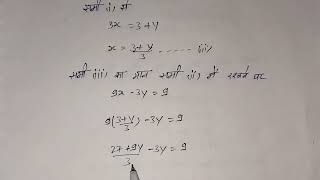 समी (i) से
3x = 3+y
x = 3+y/3 ...... (iii)
समी (iii) का मान समी (ii) में रखने पर
9x - 3y = 9
9(3+y/3) - 3y = 9
27+9y/3 - 3y = 9